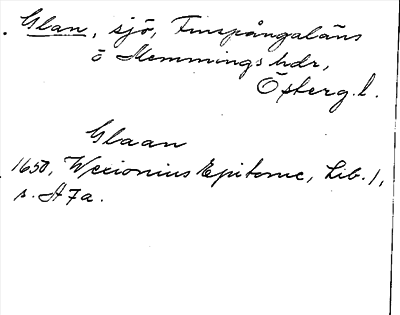 Glan, sjö, Finspångaläns
o Memmings hdr,
Österg. l.
Glaan
1650, Wexionius Epitome, Lib. 1,
s. A 7 a.